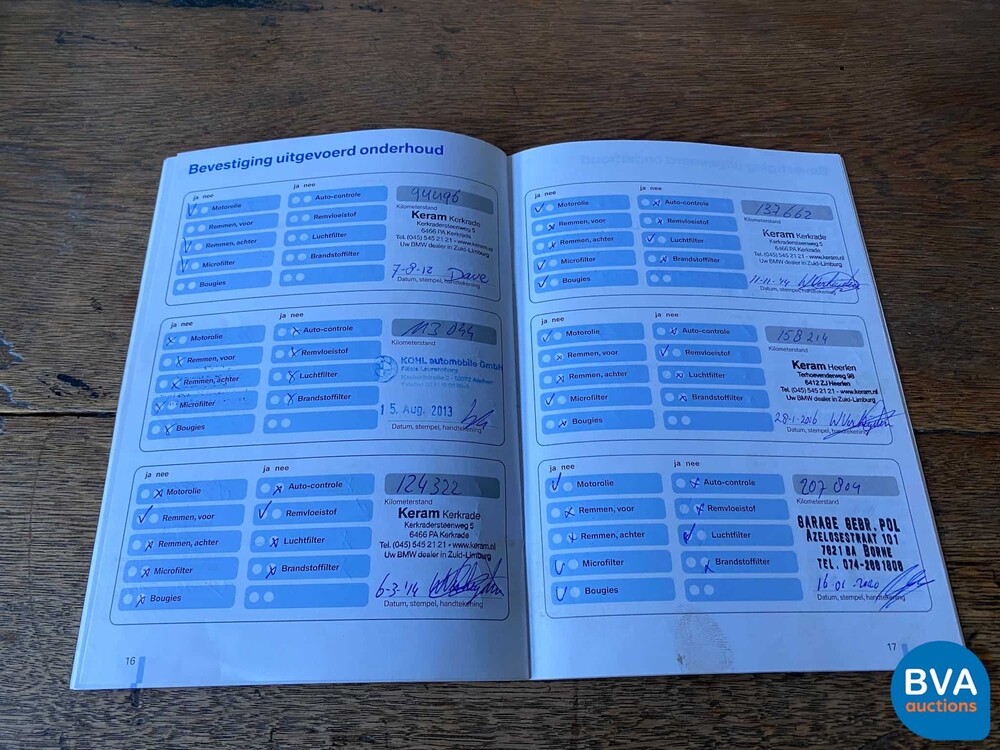 Bevestiging uitgevoerd onderhoud
ja nee
ja nee
Motorolie
Remmen, voor
Remmen, achter
Microfilter
Bougies
Auto-controle
Remvloeistof
Luchtfilter
Brandstoffilter
94496
Kilometerstand
Keram Kerkrade
Kerkradersteenweg 5
6466 PA Kerkrade
Tel. (045) 545 21 21 - www.keram.nl
Uw BMW dealer in Zuid-Limburg
7-8-12 Dave
Datum, stempel, handtekening
ja nee
ja nee
Motorolie
Remmen, voor
Remmen, achter
Microfilter
Bougies
Auto-controle
Remvloeistof
Luchtfilter
Brandstoffilter
113 034
Kilometerstand
KOHL automobile GmbH
15. Aug. 2013
Datum, stempel, handtekening
ja nee
ja nee
Motorolie
Remmen, voor
Remmen, achter
Microfilter
Bougies
Auto-controle
Remvloeistof
Luchtfilter
Brandstoffilter
124322
Kilometerstand
Keram Kerkrade
Kerkradersteenweg 5
6466 PA Kerkrade
Tel. (045) 545 21 21 - www.keram.nl
Uw BMW dealer in Zuid-Limburg
6-3-'14
Datum, stempel, handtekening
16
ja nee
ja nee
Motorolie
Remmen, voor
Remmen, achter
Microfilter
Bougies
Auto-controle
Remvloeistof
Luchtfilter
Brandstoffilter
137662
Kilometerstand
Keram Kerkrade
Kerkradersteenweg 5
6466 PA Kerkrade
Tel. (045) 545 21 21 - www.keram.nl
Uw BMW dealer in Zuid-Limburg
11-11-'14
Datum, stempel, handtekening
ja nee
ja nee
Motorolie
Remmen, voor
Remmen, achter
Microfilter
Bougies
Auto-controle
Remvloeistof
Luchtfilter
Brandstoffilter
158214
Kilometerstand
Keram Heerlen
Terhoevenderweg 98
6412 ZJ Heerlen
Tel. (045) 545 21 21 - www.keram.nl
Uw BMW dealer in Zuid-Limburg
28-1-2016
Datum, stempel, handtekening
ja nee
ja nee
Motorolie
Remmen, voor
Remmen, achter
Microfilter
Bougies
Auto-controle
Remvloeistof
Luchtfilter
Brandstoffilter
207 804
Kilometerstand
GARAGE GEBR. POL
AZELOSESTRAAT 101
7621 BA BORNE
TEL. 074-2661808
16 01-2020
Datum, stempel, handtekening
17
BVA
auctions